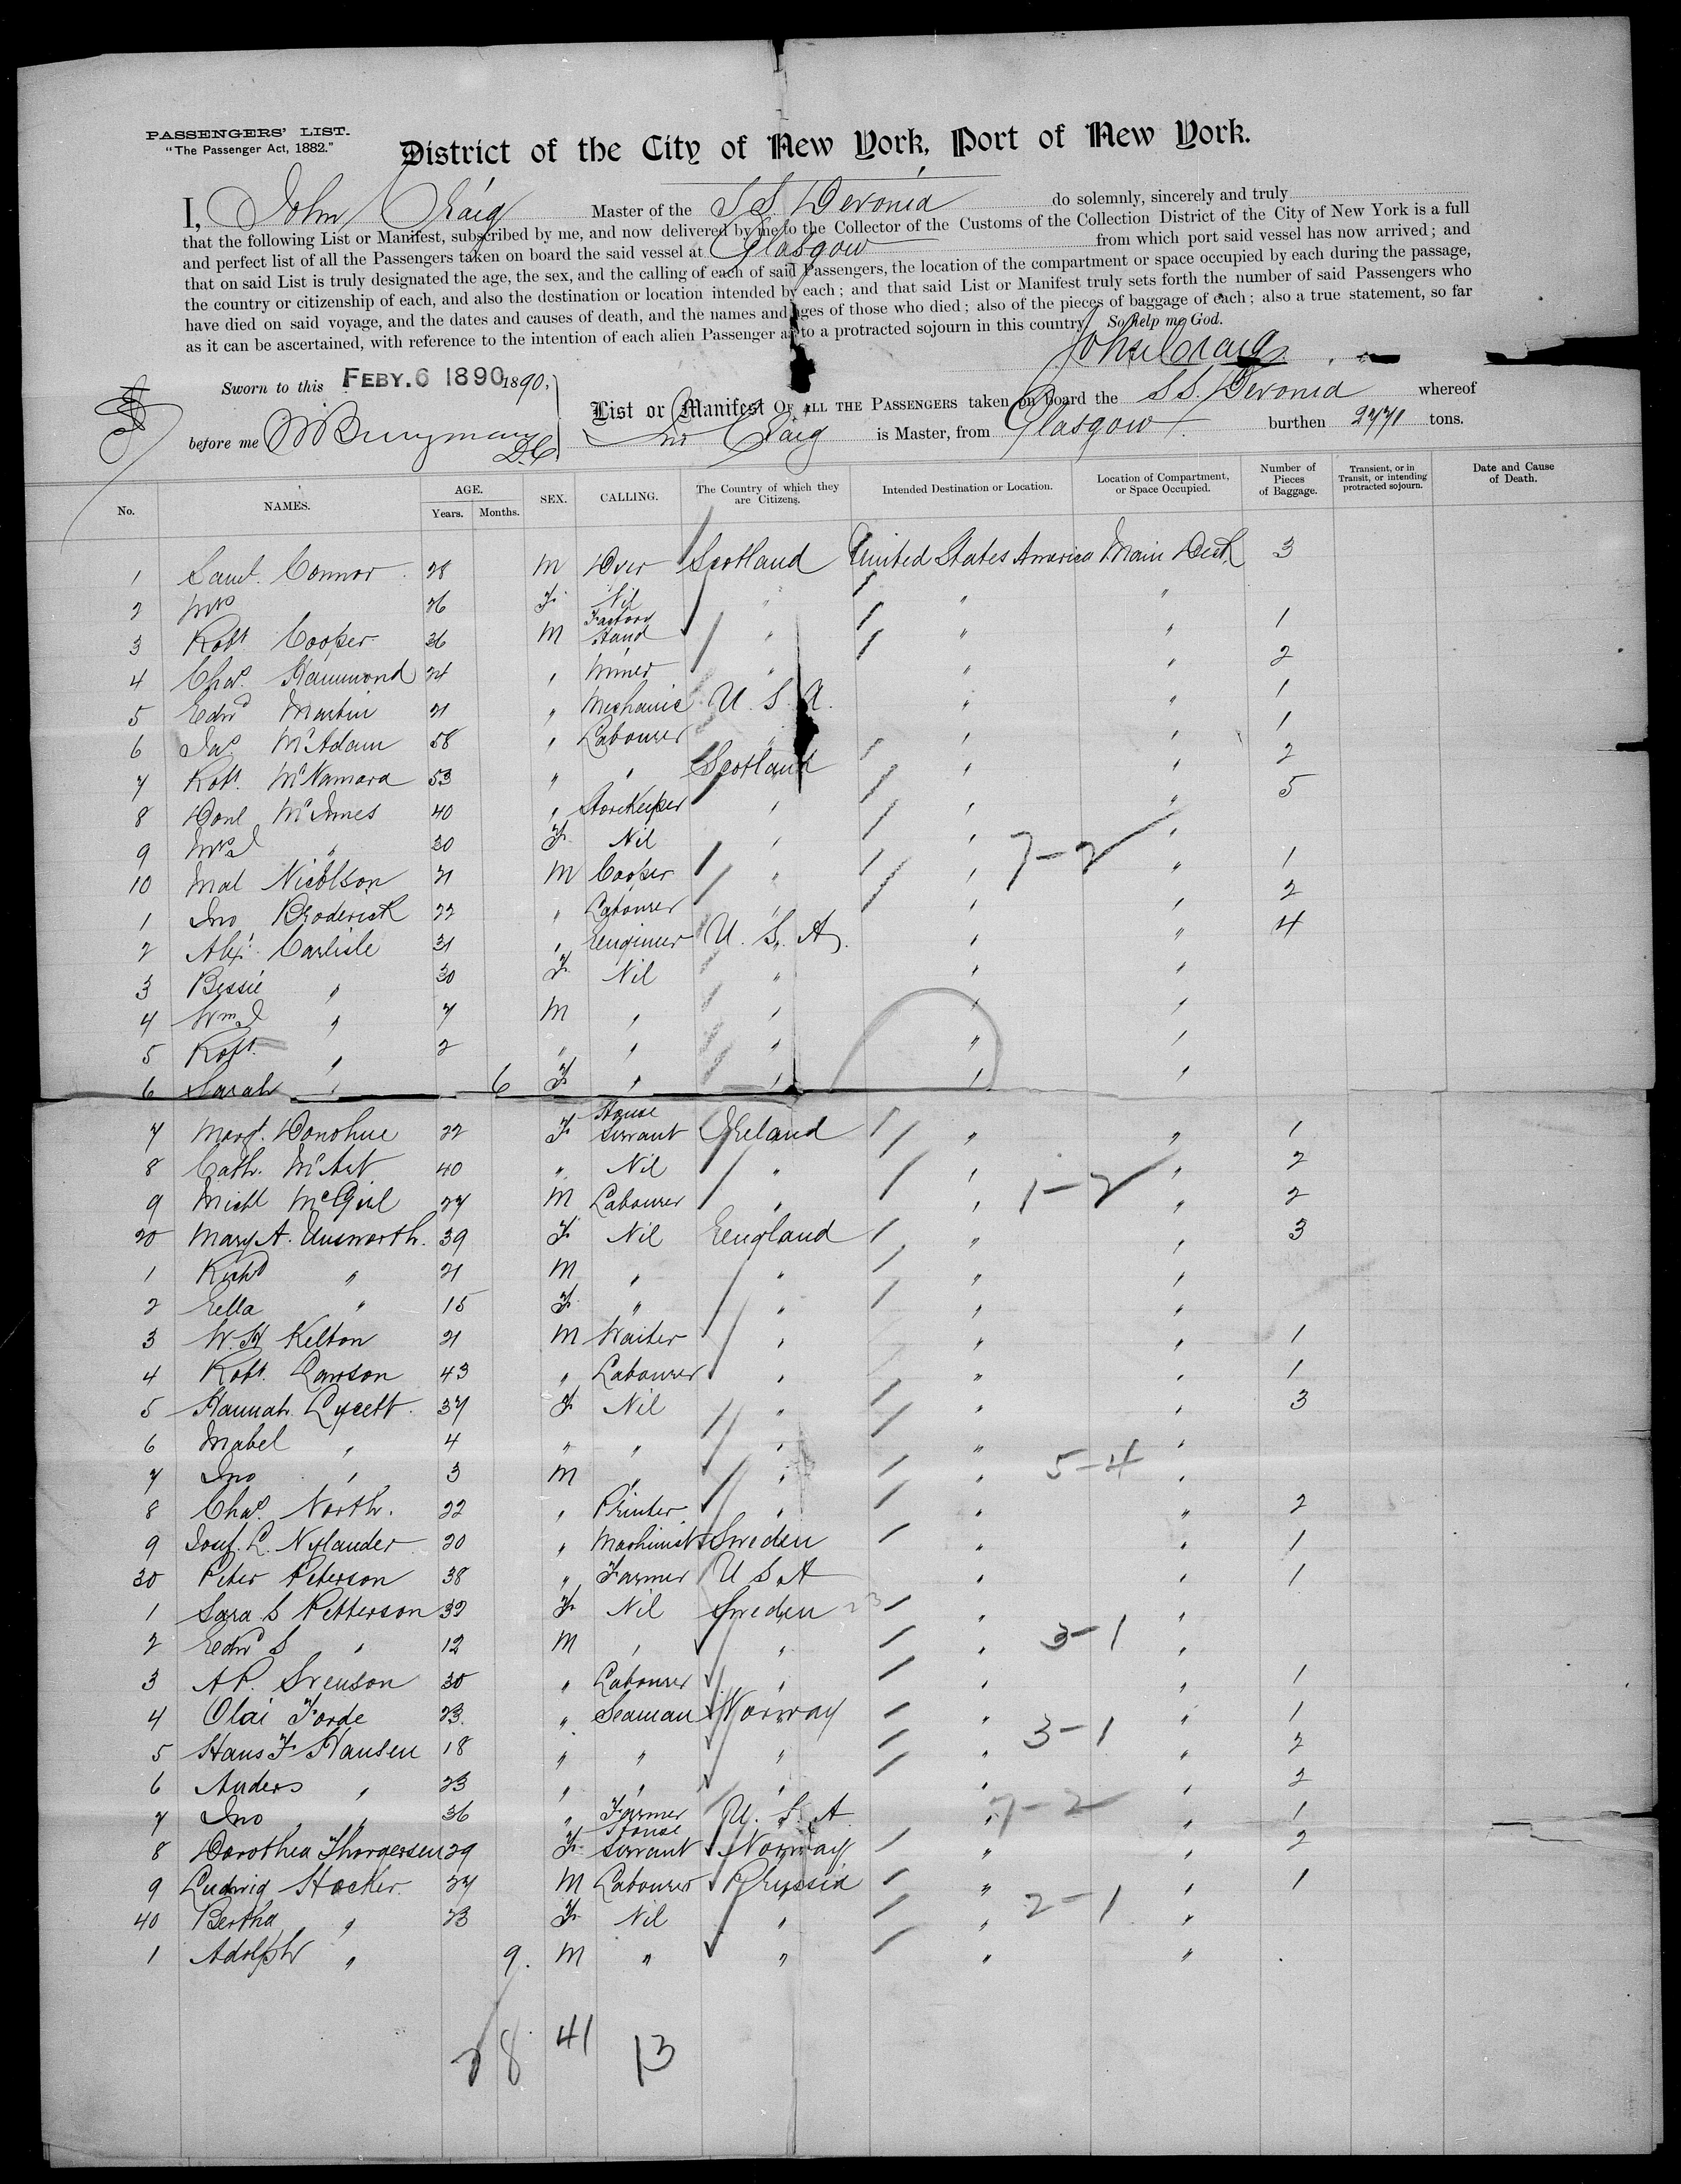 PASSENGERS' LIST.
"The Passenger Act, 1882."
District of the City of New York, Port of New York.
I, John Craig Master of the S.S. Devonia do solemnly, sincerely and truly
that the following List or Manifest, subscribed by me, and now delivered by me to the Collector of the Customs of the Collection District of the City of New York is a full
and perfect list of all the Passengers taken on board the said vessel at Glasgow from which port said vessel has now arrived; and
that on said List is truly designated the age, the sex, and the calling of each of said Passengers, the location of the compartment or space occupied by each during the passage,
the country or citizenship of each, and also the destination or location intended by each; and that said List or Manifest truly sets forth the number of said Passengers who
have died on said voyage, and the dates and causes of death, and the names and ages of those who died; also of the pieces of baggage of each; also a true statement, so far
as it can be ascertained, with reference to the intention of each alien Passenger as to a protracted sojourn in this country. So help me God.
John Craig
Sworn to this FEBY. 6 1890 1890,
List or Manifest OF ALL THE PASSENGERS taken on board the S.S. Devonia whereof
before me D.C. Jno Craig is Master, from Glasgow burthen 2771 tons.
No. NAMES. AGE. Years. Months. SEX. CALLING. The Country of which they are Citizens. Intended Destination or Location. Location of Compartment, or Space Occupied. Number of Pieces of Baggage. Transient, or in Transit, or intending protracted sojourn. Date and Cause of Death.
1 Saml. Connor 28 M Dyer Scotland United States America Main Deck 3
2 Mrs 26 F. Nil " " "
3 Robt Cooper 36 M Factory Hand " " " 1
4 Chas. Hammond 24 " Miner " " " 2
5 Edwd Martin 21 " Mechanic U. S. A. " " 1
6 Jas. McAdam 58 " Labourer " " " 1
7 Robt. McNamara 53 " " Scotland " " 2
8 Donl McInnes 40 " Storekeeper " " " 5
9 Mrs " 30 F. Nil " " " 7-2
10 Mal Nicolson 21 M Cooper " " " 1
1 Jno Broderick 22 " Labourer " " " 2
2 Alex. Carlisle 31 " Engineer U. S. A. " " 4
3 Bessie " 30 F. Nil " " "
4 Wm " 7 M " " " "
5 Robt. " 2 " " " " "
6 Sarah " 6 F. " " " "
7 Margt. Donohue 22 F. House Servant Ireland " " 1
8 Cath. McArt 40 " Nil " " " 2
9 Michl McGirl 27 M Labourer " " 1-2 " 2
20 Mary A. Unsworth. 39 F. Nil England " " 3
1 Richd " 21 M " " " "
2 Ella " 15 F. " " " "
3 W. H. Kelton 21 M Waiter " " " 1
4 Robt. Lawson 43 " Labourer " " " 1
5 Hannah Lycett. 37 F. Nil " " " 3
6 Mabel " 4 " " " " "
7 Jno " 3 M " " " 5-4 "
8 Chas. North. 22 " Printer " " " 2
9 Josef. L. Nylander 20 " Machinist Sweden " " 1
30 Peter Peterson 38 " Farmer U S A " " 1
1 Sara S Petterson 32 F. Nil Sweden " "
2 Edwd S " 12 M " " " 3-1 "
3 A P. Svenson 30 " Labourer " " " 1
4 Olai Forde 23. " Seaman Norway " " 1
5 Hans F Hansen 18 " " " " 3-1 " 2
6 Anders " 23 " " " " " 2
7 Jno " 36 " Farmer U. S. A " 7-2 " 1
8 Dorothea Thorgersen 29 F. House Servant Norway " " 2
9 Ludwig Stocker. 27 M Labourer Prussia " " 1
40 Bertha " 23 F. Nil " " 2-1 "
1 Adolph " 9. M " " " "
28 41 13